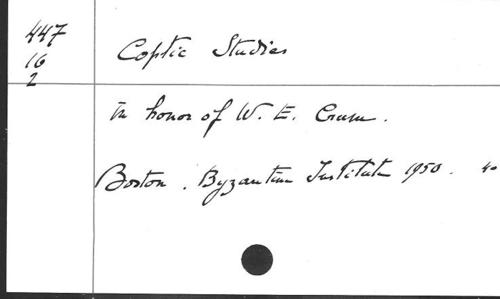 447
16
2
Coptic Studies
in honor of W. E. Crum.
Boston. Byzantine Institute 1950. 40